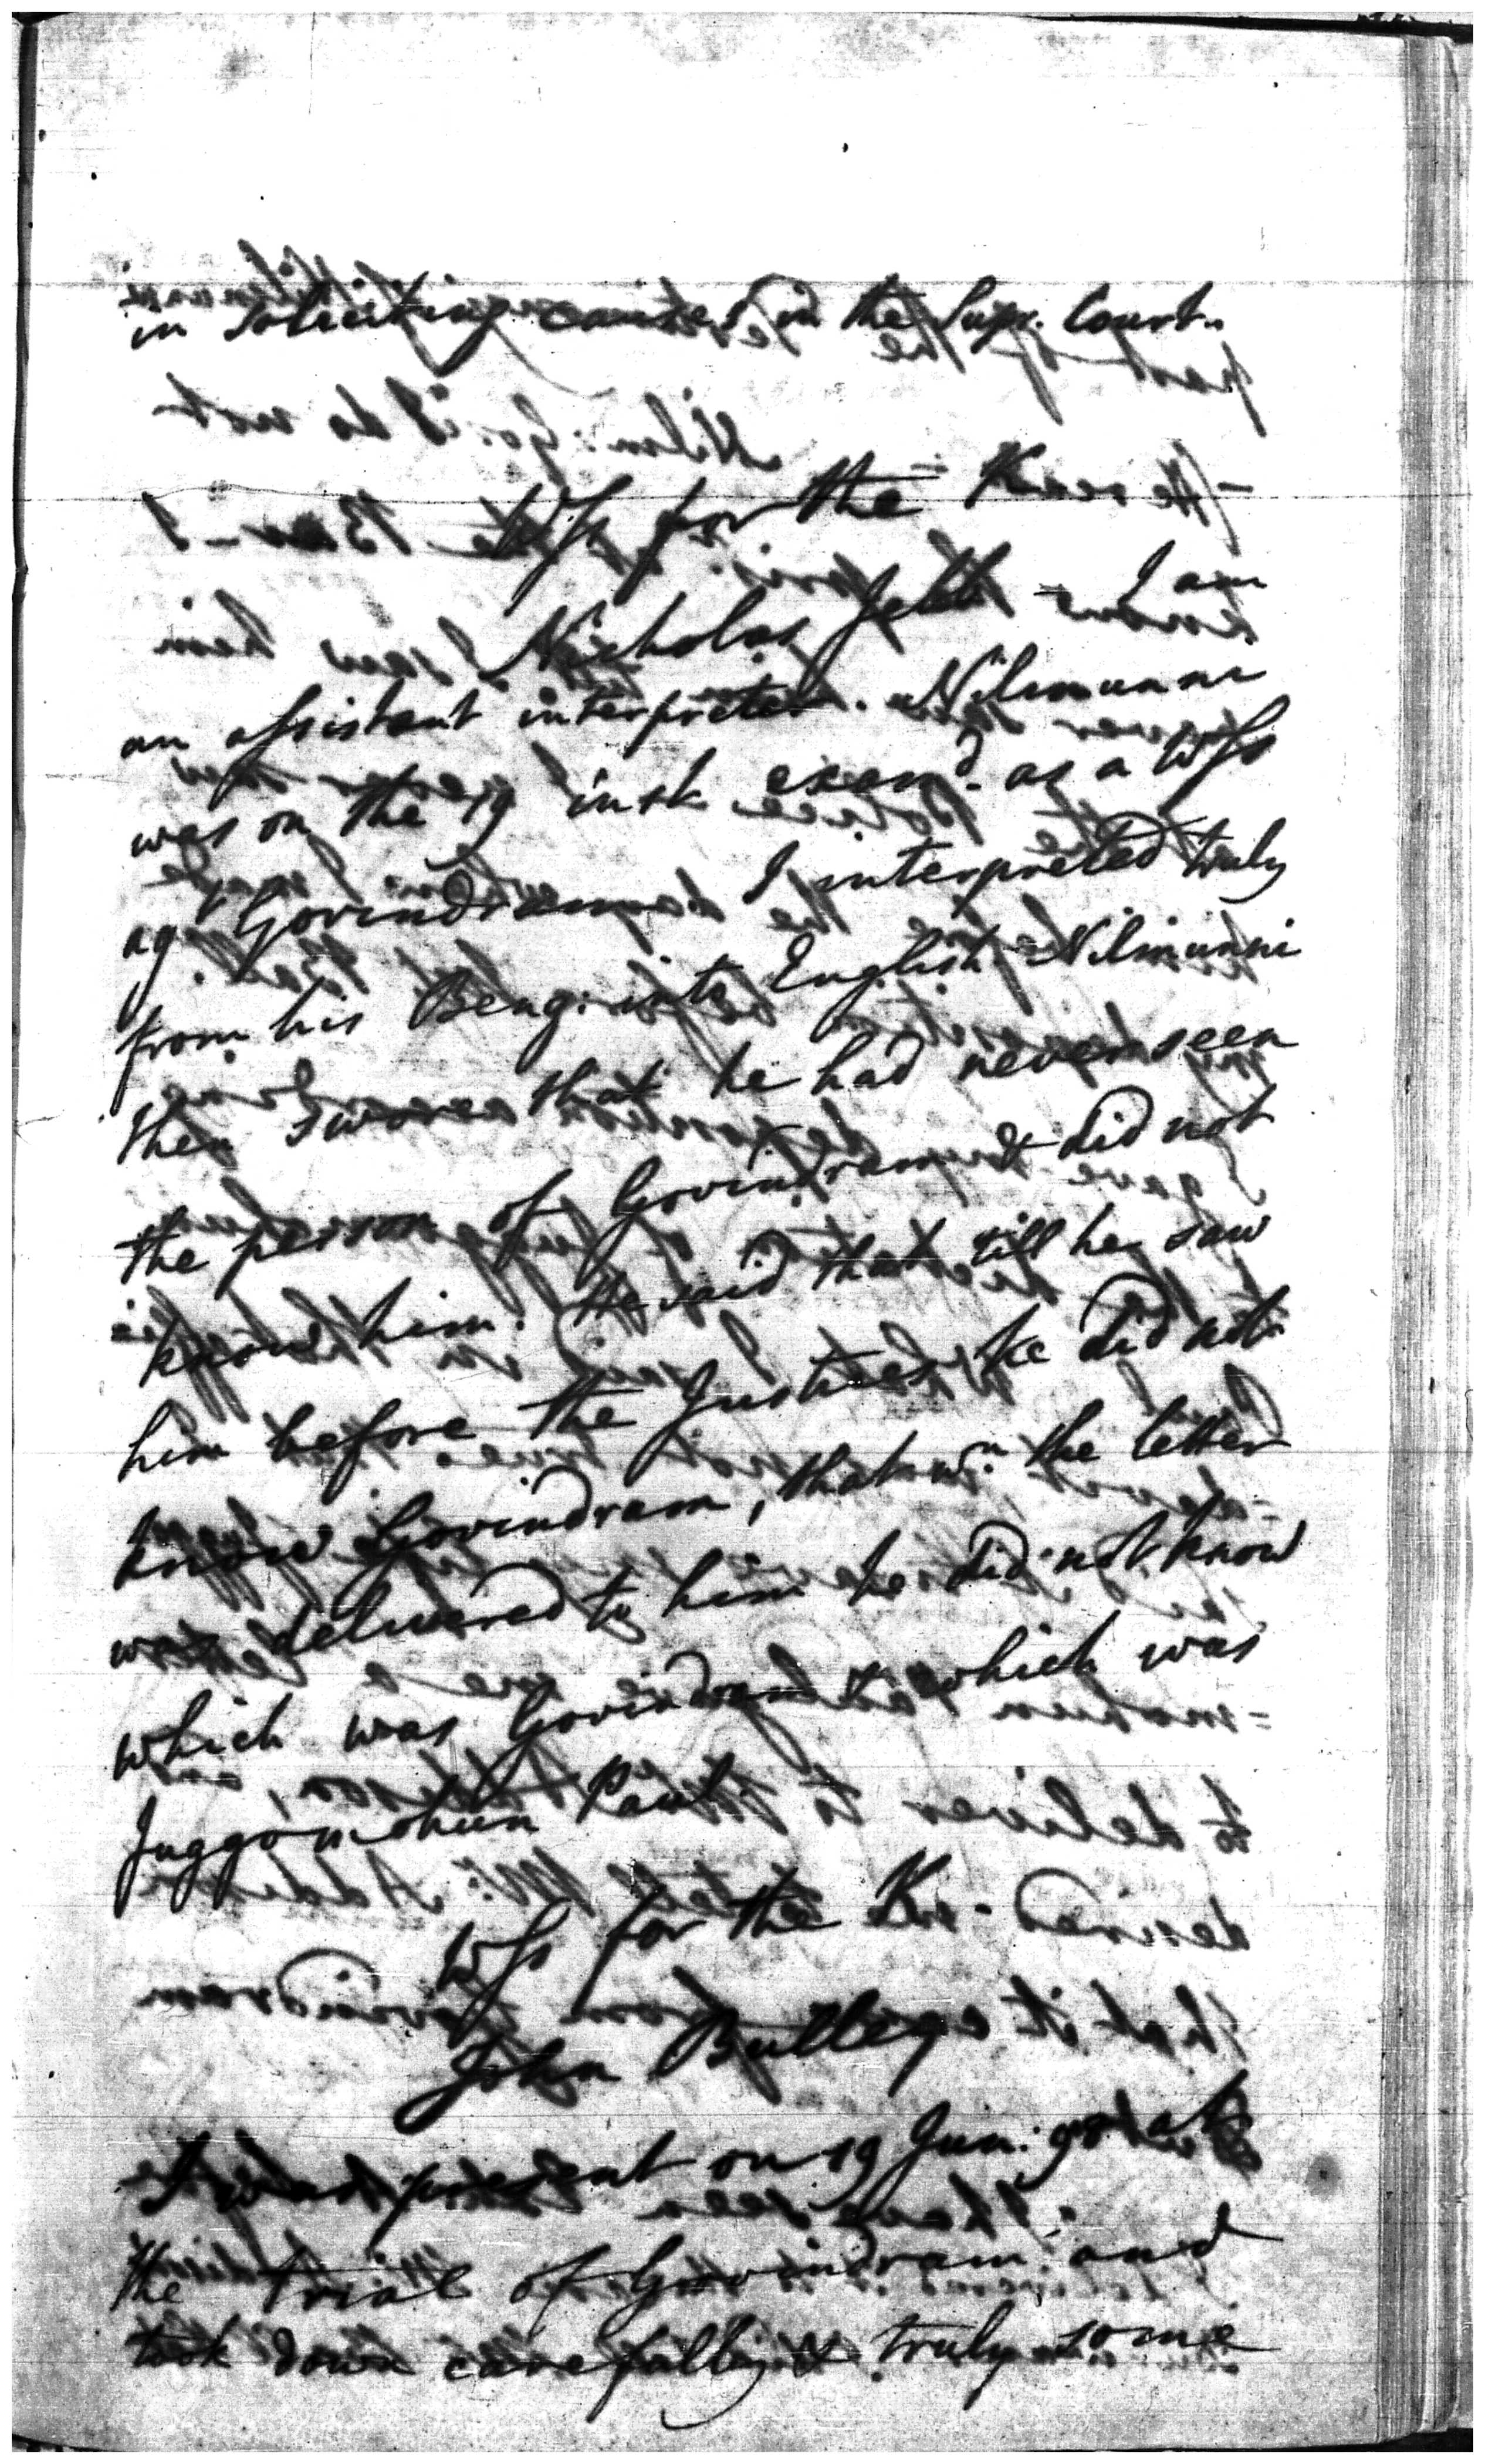 in soliciting causes in the Supr. Court.
Wss for the K
Nicholas = I am
an assistant interpreter. Nilmunni
was on the 19 inst. examd. as a Wss
agt Govindram I interpreted truly
from his Beng. into English Nilmunni
then swore that he had never seen
the person of Govindram & did not
know him. He said that till he saw
him before the Justices he did not
know Govindram, that wn. the letter
was delivered to him he did not know
which was Govindram & which was
Juggomohun Paul.
Wss for the K.
John
I was present on 19 Jun: at
the trial of Govindram and
took down carefully & truly some